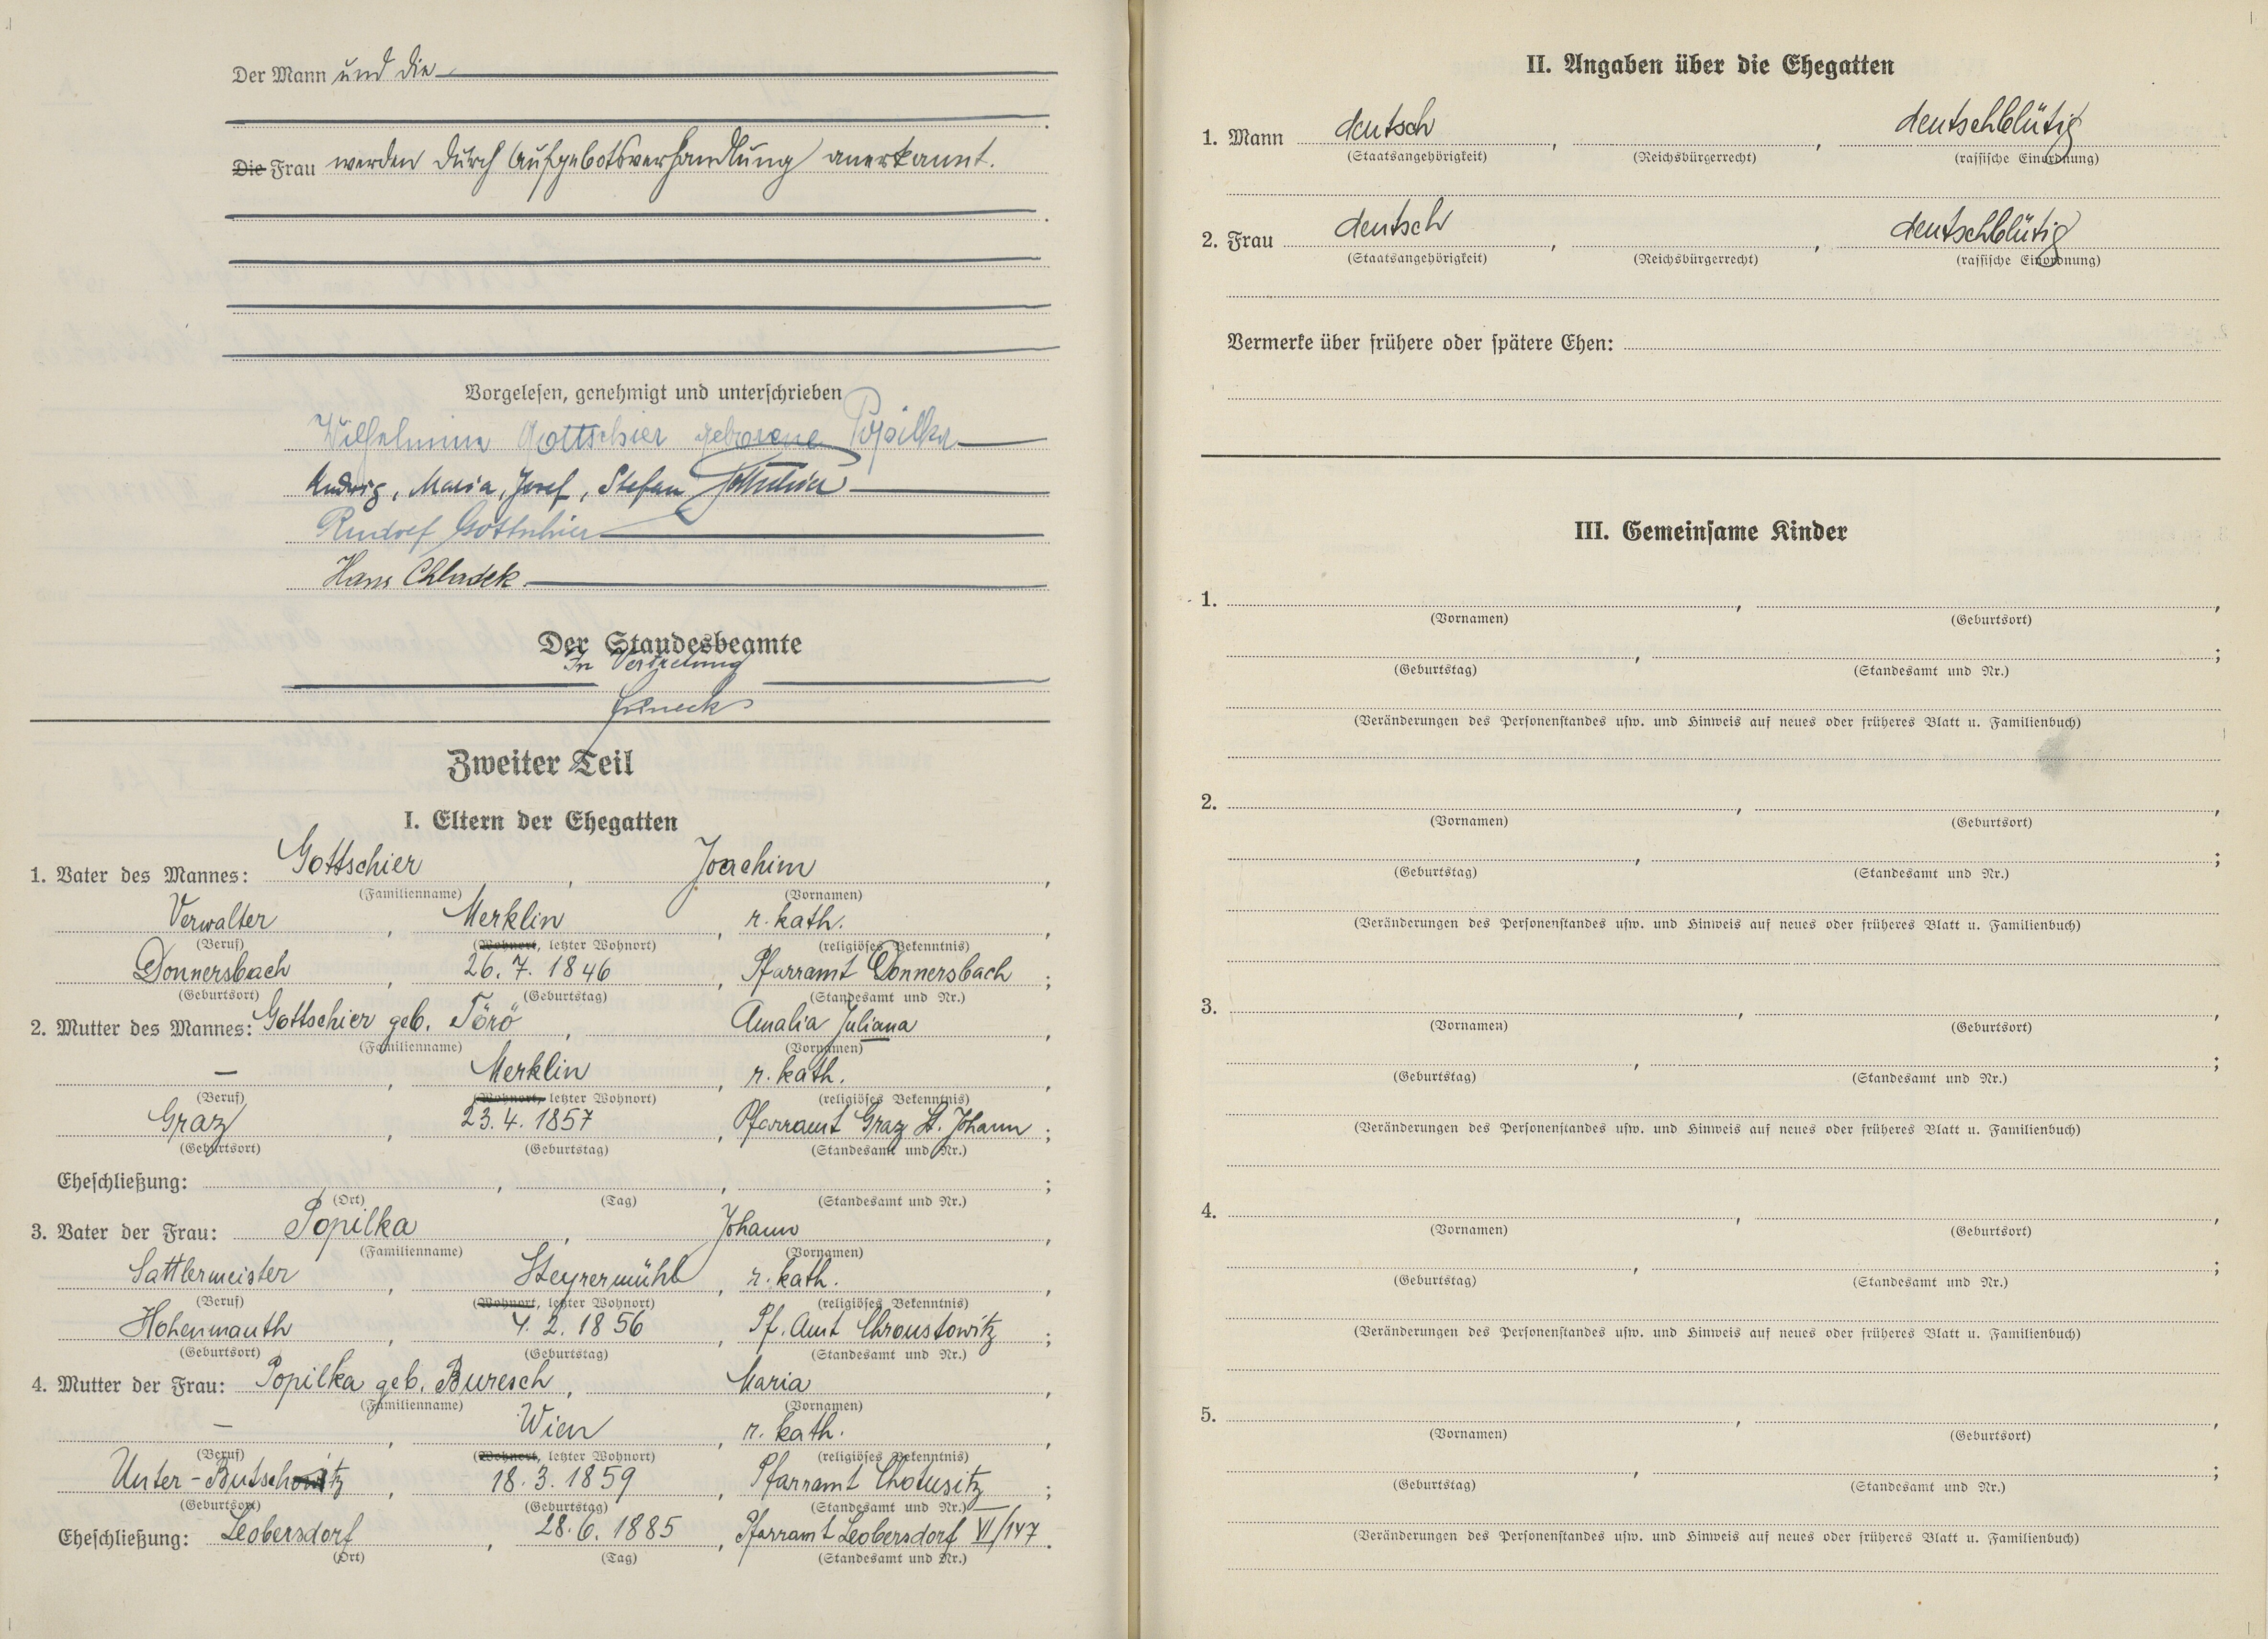 Der Mann und die
Die Frau werden durch Aufgebotsverhandlung anerkannt.
Vorgelesen, genehmigt und unterschrieben
Wilhelmine Gottschier geborene Popilka
Ludwig, Maria, Josef, Stefan Gottschier
Rudolf Gottschier
Hans Chladek
Der Standesbeamte
In Vertretung
Zweiter Teil
I. Eltern der Ehegatten
1. Vater des Mannes: Gottschier, Joachim,
(Familienname) (Vornamen)
Verwalter, Merklin, r. kath.,
(Beruf) (Wohnort, letzter Wohnort) (religiöses Bekenntnis)
Donnersbach, 26. 7. 1846, Pfarramt Donnersbach;
(Geburtsort) (Geburtstag) (Standesamt und Nr.)
2. Mutter des Mannes: Gottschier geb. Törö, Amalia Juliana,
(Familienname) (Vornamen)
—, Merklin, r. kath.,
(Beruf) (Wohnort, letzter Wohnort) (religiöses Bekenntnis)
Graz, 23. 4. 1857, Pfarramt Graz St. Johann;
(Geburtsort) (Geburtstag) (Standesamt und Nr.)
Eheschließung: , , ;
(Ort) (Tag) (Standesamt und Nr.)
3. Vater der Frau: Popilka, Johann,
(Familienname) (Vornamen)
Sattlermeister, Steyrermühl, r. kath.,
(Beruf) (Wohnort, letzter Wohnort) (religiöses Bekenntnis)
Hohenmauth, 4. 2. 1856, Pf. Amt Chroustowitz;
(Geburtsort) (Geburtstag) (Standesamt und Nr.)
4. Mutter der Frau: Popilka geb. Buresch, Maria,
(Familienname) (Vornamen)
—, Wien, r. kath.,
(Beruf) (Wohnort, letzter Wohnort) (religiöses Bekenntnis)
Unter-Butschitz, 18. 3. 1859, Pfarramt Chotusitz;
(Geburtsort) (Geburtstag) (Standesamt und Nr.)
Eheschließung: Leobersdorf, 28. 6. 1885, Pfarramt Leobersdorf VI/147.
(Ort) (Tag) (Standesamt und Nr.)
II. Angaben über die Ehegatten
1. Mann deutsch, , deutschblütig
(Staatsangehörigkeit) (Reichsbürgerrecht) (rassische Einordnung)
2. Frau deutsch, , deutschblütig
(Staatsangehörigkeit) (Reichsbürgerrecht) (rassische Einordnung)
Vermerke über frühere oder spätere Ehen:
III. Gemeinsame Kinder
1. , ,
(Vornamen) (Geburtsort)
, ;
(Geburtstag) (Standesamt und Nr.)
(Veränderungen des Personenstandes usw. und Hinweis auf neues oder früheres Blatt u. Familienbuch)
2. , ,
(Vornamen) (Geburtsort)
, ;
(Geburtstag) (Standesamt und Nr.)
(Veränderungen des Personenstandes usw. und Hinweis auf neues oder früheres Blatt u. Familienbuch)
3. , ,
(Vornamen) (Geburtsort)
, ;
(Geburtstag) (Standesamt und Nr.)
(Veränderungen des Personenstandes usw. und Hinweis auf neues oder früheres Blatt u. Familienbuch)
4. , ,
(Vornamen) (Geburtsort)
, ;
(Geburtstag) (Standesamt und Nr.)
(Veränderungen des Personenstandes usw. und Hinweis auf neues oder früheres Blatt u. Familienbuch)
5. , ,
(Vornamen) (Geburtsort)
, ;
(Geburtstag) (Standesamt und Nr.)
(Veränderungen des Personenstandes usw. und Hinweis auf neues oder früheres Blatt u. Familienbuch)